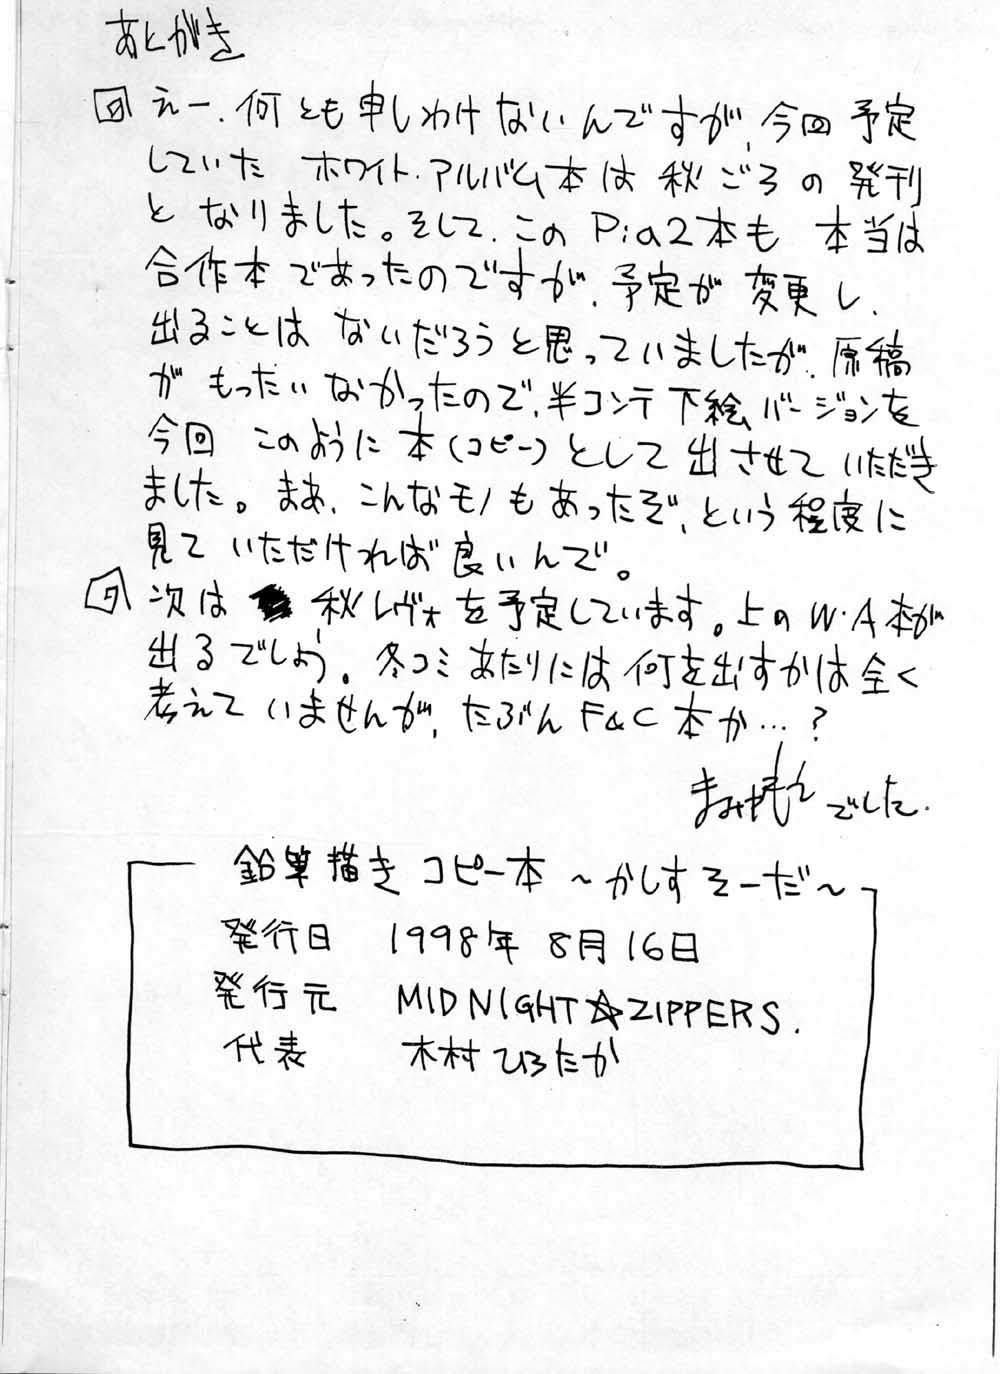 あとがき
えー、何とも申しわけないんですが、今回予定
していた ホワイト・アルバム本は秋ごろの発刊
となりました。そして、このPia2本も 本当は
合作本であったのですが、予定が変更し、
出ることはないだろうと思っていましたが、原稿
がもったいなかったので、半コンテ下絵バージョンを
今回 このように本(コピー)として出させていただき
ました。まあ、こんなモノもあったぞ、という程度に
見ていただければ良いんで。
次は 秋レヴォを予定しています。上のW・A本が
出るでしょう。冬コミあたりには何を出すかは全く
考えていませんが、たぶんF&C本か…?
でした.
鉛筆描きコピー本 ~かしすそーだ~
発行日 1998年8月16日
発行元 MIDNIGHT☆ZIPPERS.
代表 木村ひろたか